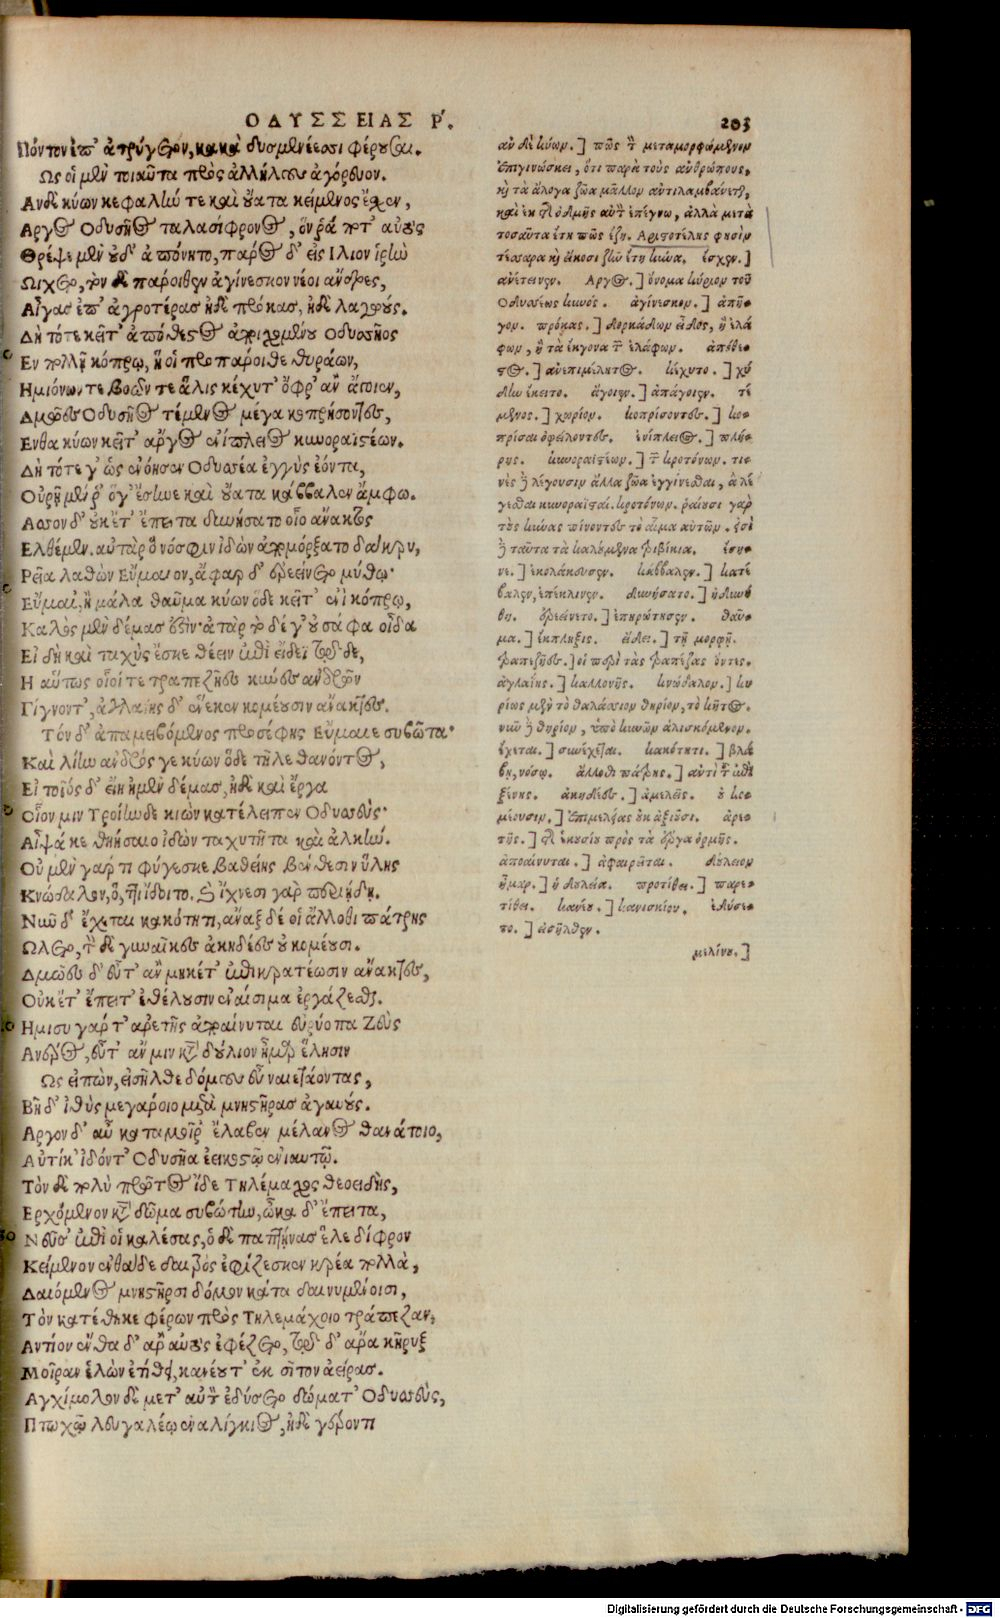 ΟΔΥΣΣΕΙΑΣ Ρ΄.
203
Πόντον ἐπ' ἀτρύγετον, κακὰ δυσμενέεσσι φέρουσαι.
Ως οἱ μὲν τοιαῦτα πρὸς ἀλλήλους ἀγόρευον.
Αν δὲ κύων κεφαλήν τε καὶ οὔατα κείμενος ἔσχεν,
Αργος Οδυσῆος ταλασίφρονος, ὅν ῥά ποτ' αὐτὸς
Θρέψε μὲν οὐδ' ἀπόνητο, πάρος δ' εἰς Ιλιον ἱρὴν
Ωιχετο, τὸν δὲ πάροιθεν ἀγίνεσκον νέοι ἄνδρες,
Αἶγας ἐπ' ἀγροτέρας ἠδὲ πρόκας, ἠδὲ λαγωούς.
Δὴ τότε κεῖτ' ἀπόθεστος ἀποιχομένου Οδυσῆος
Εν πολλῇ κόπρῳ, ἥ οἱ προπάροιθε θυράων,
Ημιόνων τε βοῶν τε ἅλις κέχυτ' ὄφρ' ἂν ἄγοιεν,
Δμῶες Οδυσῆος τέμενος μέγα κοπρήσοντες,
Ενθα κύων κεῖτ' αργος ἐνίπλειος κυνοραϊστέων.
Δὴ τότε γ' ὡς ἐνόησεν Οδυσσέα ἐγγὺς ἐόντα,
Οὐρῇ μέν ῥ' ὅγ' ἔσηνε καὶ οὔατα κάββαλεν ἄμφω.
Ασσον δ' οὐκέτ' ἔπειτα δυνήσατο οἷο ἄνακτος
Ελθέμεν. αὐτὰρ ὃ νόσφιν ἰδὼν ἀπομόρξατο δάκρυ,
Ρεῖα λαθὼν Εὔμαιον, ἄφαρ δ' ἐρεείνετο μύθῳ·
Εὔμαι', ἦ μάλα θαῦμα κύων ὅδε κεῖτ' ἐνὶ κόπρῳ,
Καλὸς μὲν δέμας ἐστὶν· ἀτὰρ τόδε γ' οὐ σάφα οἶδα
Εἰ δὴ καὶ ταχὺς ἔσκε θέειν ἐπὶ εἴδεϊ τῷδε,
Η αὔτως οἷοί τε τραπεζῆες κύνες ἀνδρῶν
Γίγνοντ', ἀγλαΐης δ' ἕνεκεν κομέουσιν ἄνακτες.
Τόν δ' ἀπαμειβόμενος προσέφης Εὔμαιε συβῶτα·
Καὶ λίην ἀνδρός γε κύων ὅδε τῆλε θανόντος,
Εἰ τοιός δ' εἴη ἠμὲν δέμας, ἠδὲ καὶ ἔργα
Οἷον μιν Τροίηνδε κιὼν κατέλειπεν Οδυσσεὺς·
Αἶψά κε θηήσαιο ἰδὼν ταχυτῆτα καὶ ἀλκήν.
Οὐ μὲν γάρ τι φύγεσκε βαθείης βένθεσιν ὕλης
Κνώδαλον, ὅ,ττι ἴδοιτο. καὶ ἴχνεσι γὰρ περιῄδη.
Νῦν δ' ἔχεται κακότητι, ἄναξ δέ οἱ ἄλλοθι πάτρης
Ωλετο, τὸν δὲ γυναῖκες ἀκηδέες οὐ κομέουσι.
Δμῶες δ' εὖτ' ἂν μηκέτ' ἐπικρατέωσιν ἄνακτες,
Οὐκέτ' ἔπειτ' ἐθέλουσιν ἐναίσιμα ἐργάζεσθαι.
Ημισυ γάρ τ' ἀρετῆς ἀποαίνυται εὐρύοπα Ζεὺς
Ανέρος, εὖτ' ἄν μιν κατὰ δούλιον ἦμαρ ἕλησιν
Ως εἰπὼν, εἰσῆλθε δόμους εὖ ναιετάοντας,
Βῆ δ' ἰθὺς μεγάροιο μετὰ μνηστῆρας ἀγαυούς.
Αργον δ' αὖ κατα μοῖρ' ἔλαβεν μέλανος θανάτοιο,
Αὐτίκ' ἰδόντ' Οδυσῆα ἐεικοστῷ ἐνιαυτῷ.
Τὸν δὲ πολὺ πρῶτος ἴδε Τηλέμαχος θεοειδὴς,
Ερχόμενον κατὰ δῶμα συβώτην, ὦκα δ' ἔπειτα,
Νεῦσ' ἐπὶ οἷ καλέσας, ὁ δὲ παπτήνας ἕλε δίφρον
Κείμενον ἔνθα δε δαιτρὸς ἐφίζεσκεν κρέα πολλὰ,
Δαιόμενος μνηστῆρσι δόμον κάτα δαινυμένοισι,
Τὸν κατέθηκε φέρων πρὸς Τηλεμάχοιο τράπεζαν,
Αντίον ἔνθα δ' ἄρ' αὐτὸς ἐφέζετο, τῷ δ' ἄρα κῆρυξ
Μοῖραν ἑλὼν ἐτίθει, κανέου τ' ἐκ σῖτον ἀείρας.
Αγχίμολον δὲ μετ' αὐτὸν ἐδύσετο δώματ' Οδυσσεὺς,
Πτωχῷ λευγαλέῳ ἐναλίγκιος, ἠδὲ γέροντι
αν δὲ κύων.] πῶς τὸν μεταμορφώμενον
ἐπιγινώσκει, ὅτι παρὰ τοὺς ἀνθρώπους,
καὶ τὰ ἄλογα ζῶα μᾶλλον ἀντιλαμβάνεται,
καὶ ἐκ τῆς ὀδμῆς αὐτὸν ἐπέγνω, ἀλλὰ μετὰ
τοσαῦτα ἔτη πῶς ἔζη. Αριστοτέλης φησὶν
τέσσαρα καὶ εἴκοσι ζῆν ἔτη κύνα. ἔσχεν.]
ἀνέτεινεν. Αργος.] ὄνομα κύριον τοῦ
Οδυσσέως κυνός. ἀγίνεσκον.] ἀπῆ-
γον. πρόκας.] δορκάδων εἶδος, ἢ ἐλά
φων, ἢ τὰ ἔκγονα τῶν ἐλάφων. ἀπόθε-
στος.] ἀνεπιμέλητος. κέχυτο.] χύ
δην ἔκειτο. ἄγοιεν.] ἀπάγοιεν. τέ
μενος.] χωρίον. κοπρίσοντες.] κο-
πρίσαι ὀφείλοντες. ἐνίπλειος.] πλή-
ρης. κυνοραϊστεων.] τῶν κροτόνων. τι-
νὲς δὲ λέγουσιν ἄλλα ζῶα ἐγγίνεσθαι, ἃ λέ
γεσθαι κυνοραϊσταί. κροτόνων. ῥαίουσι γὰρ
τοὺς κύνας πίνοντες τὸ αἷμα αὐτῶν. ἐστὶ
δὲ ταῦτα τὰ καλούμενα ῥιβίκια. ἔση-
νε.] ἐκολάκευσεν. κάββαλεν.] κατέ
βαλεν, ἐπέκλινεν. δυνήσατο.] ἠδυνή
θη. ἐρεείνετο.] ἐπηρώτησεν. θαῦ-
μα.] ἔκπληξις. εἴδει.] τῇ μορφῇ.
τραπεζῆες.] οἱ περὶ τὰς τραπέζας ὄντες.
ἀγλαΐης.] καλλονῆς. κνώδαλον.] κυ
ρίως μὲν τὸ θαλάσσιον θηρίον, τὸ κῆτος.
νῦν δὲ θηρίον, ὑπὸ κυνῶν ἁλισκόμενον.
ἔχεται.] συνέχεται. κακότητι.] βλά
βῃ, νόσῳ. ἄλλοθι πάτρης.] ἀντὶ τοῦ ἐπὶ
ξένης. ἀκηδέες.] ἀμελεῖς. οὐ κο-
μέουσιν.] ἐπιμελείας οὐκ ἀξιοῦσι. ἀρε-
τῆς.] τῆς ἑκουσίου πρὸς τὰ ἔργα ὁρμῆς.
ἀποαίνυται.] ἀφαιρεῖται. δούλειον
ἦμαρ.] ἡ δουλεία. προτίθει.] παρε-
τίθει. κανέου.] κανισκίου. ἐδύσε-
το.] εἰσῆλθεν.
μελίνου.]
Digitalisierung gefördert durch die Deutsche Forschungsgemeinschaft - DFG